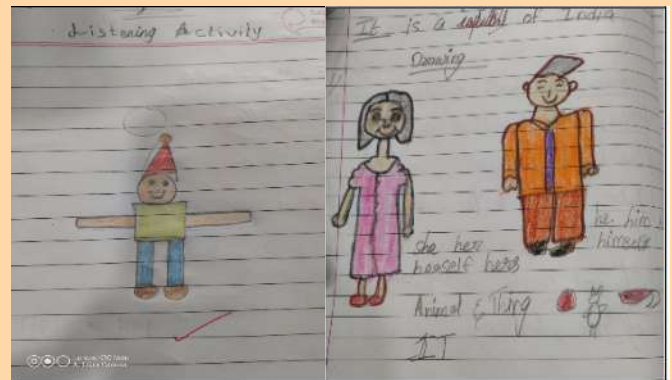 Listening Activity
It is a capital of India
Drawing
she her
herself hers
he him
himself
Animal & Thing
IT